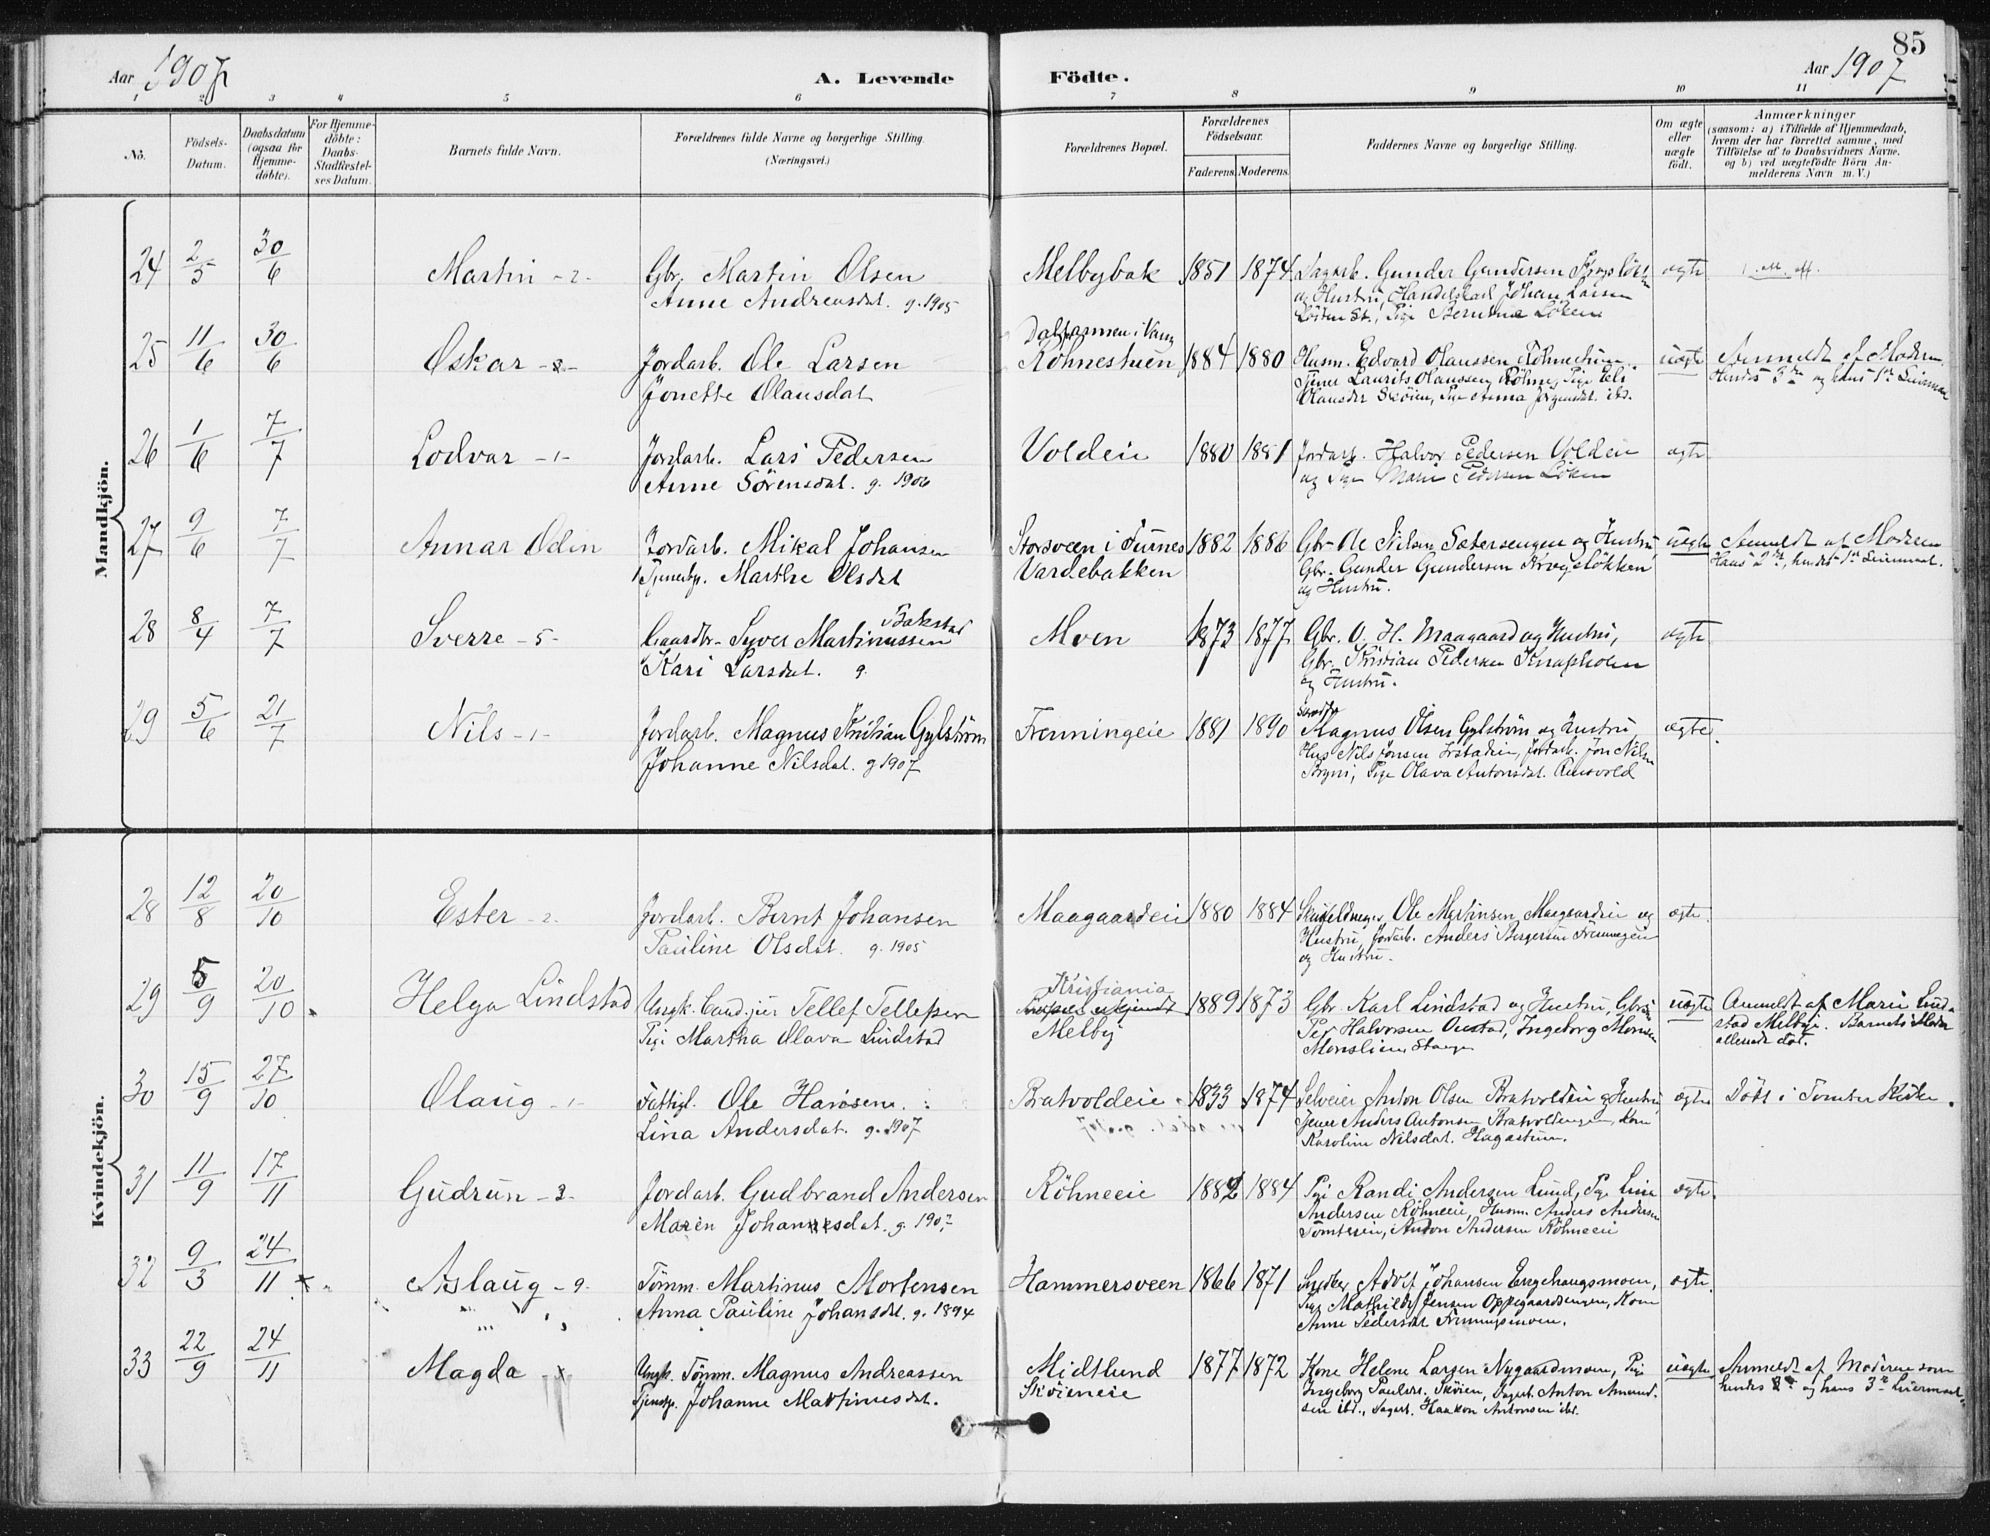 85
Aar 1907 A. Levende Födte. Aar 1907
1 2 3 4 5 6 7 8 9 10 11
No.
Födsels-Datum.
Daabsdatum (ogsaa for Hjemme-döbte).
For Hjemme-döbte: Daabs-Stadfæstel-ses Datum.
Barnets fulde Navn.
Forældrenes fulde Navne og borgerlige Stilling.
(Næringsvei.)
Forældrenes Bopæl.
Forældrenes Födselsaar.
Faderens. Moderens.
Faddernes Navne og borgerlige Stilling.
Om ægte eller uægte födt.
Anmærkninger
(saasom: a) i Tilfælde af Hjemmedaab,
hvem der har forrettet samme, med
Tilföielse af to Daabsvidners Navne,
og b) ved uægtefödte Börn An-
melderens Navn m. V.)
Mandkjön.
24 2/5 30/6 Martin - 2 - Gbr. Martin Olsen Melbybak 1851 1874 Gunder Gundersen ægte
Anne Andreasdat. g. 1905 og Hustru, Handelskarl Johan Larsen
Löten St., Pige Løken
i Vang
25 11/6 30/6 Oskar Jordarb. Ole Larsen Röhnestuen 1884 1880 Husm. Edvard Olaussen Röhnestuen. uægte Anmeldt af Moderen.
Jonette Olausdat Tjener Laurits Olaussen Röhne, Pige Eli Hendes 3die og hans 1ste Leiermaal
Olausdr Skøien, Pige Anna Jörgensdat. ibd.
26 1/6 7/7 Lodvar - 1 - Jordarb. Lars Pedersen Voldeie 1880 1881 Jordarb. Halvor Pedersen Voldeie ægte
Anne Sörensdat. g. 1906 og Pige Marie Pedersen Løken
27 9/6 7/7 Annar Odin Jordarb. Mikal Johansen Storsveen i Furnes 1882 1886 Gbr. Ole Nilsen Sætersengen og Hustru, uægte Anmeldt af Moderen
Tjenestp. Marthe Olsdat Vardebakken Gbr. Gunder Gundersen og Hustru. Hans 2det, hendes 1ste Leiermaal.
28 8/4 7/7 Sverre - 5 - Gaardbr. Syver Martinussen Bakstad Moen 1873 1877 Gbr. O. H. Maagaard og Hustru, ægte
Kari Larsdat. g. Gbr. Kristian Pedersen
og Hustru.
29 5/6 21/7 Nils - 1 - Jordarb. Magnus Kristian Gylström Fremmingeie 1881 1890 Magnus Olsen Gylström og Hustru ægte.
Johanne Nilsdat. g 1907 Nils Jonsen Jordarb. Jon Nilsen
Pige Olava Antonsdat.
Kvindekjön.
28 12/8 20/10 Ester - 2 - Jordarb. Bernt Johansen Maagaardeie 1880 1884 Ole Martinsen Maagaardeie og ægte.
Pauline Olsdat. g. 1905 Hustru, Jordarb. Anders Bergersen
og Hustru.
29 5/9 20/10 Helga Lindstad Ungk. Cand. jur Tellef Tellefsen Kristiania 1889 1873 Gbr Karl Lindstad og Hustru, uægte Anmeldt af Marie Lind-
Pige Martha Olava Lindstad Melby Per Halvorsen Onstad, Ingeborg stad Melby. Barnets Moder
Monslien, Stange allerede död.
30 15/9 27/10 Olaug - 1 - Fattigl. Ole Hansen Bratvoldeie 1833 1874 Selveier Anton Olsen Bratvoldeie og Hustru, ægte Döbt i Tomter Kirke.
Lina Andersdat. g. 1907 Tjener Anders Antonsen Bratvoldengen, Kone
Karoline Nilsdat. Hagastuen.
31 11/9 17/11 Gudrun - 3 - Jordarb. Gudbrand Andersen Röhneeie 1882 1884 Pige Randi Andersen Lund, Pige Lina ægte.
Maren Johannesdat. g. 1907 Andersen Röhneeie, Husm. Anders Andersen
Tomteeie, Anton Andersen Röhneeie
32 9/3 24/11 Aslaug - 9 - Tömm. Martinus Mortensen Hammersveen 1866 1871 Snedker Adolf Johansen Engehaugsmoen, ægte.
Anna Pauline Johansdat. g. 1894 Pige Mathilde Jensen Oppegaardsengen, Kone
Anne Pedersdat Fremmingsmoen.
33 22/9 24/11 Magda Ungk. Tömm. Magnus Andreassen Midtlund 1877 1872 Kone Helene Larsen Nygaardsmoen, Pige uægte. Anmeldt af Moderen som
Tjenestp. Johanne Martinusdat. Skøieneie Ingeborg Paulsen Skøien, Dagarb. Anton Amund- hendes og hans 3die Leiermaal
sen ibd., Dagarb. Haakon Antonsen ibd.